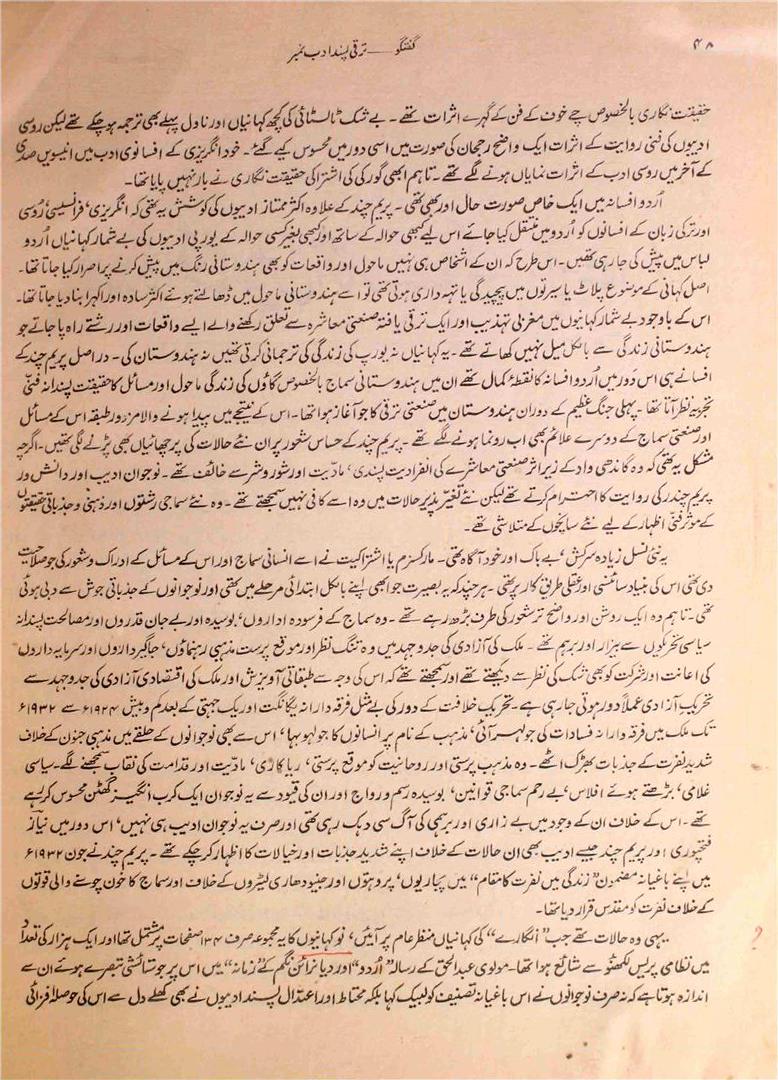 ۴۸
گفتگو — ترقی پسند ادب نمبر
حقیقت نگاری بالخصوص چے خوف کے فن کے گہرے اثرات تھے۔ بے شک ٹالسٹائی کی کچھ کہانیاں اور ناول پہلے بھی ترجمہ ہو چکے تھے لیکن روسی
ادیبوں کی فنی روایت کے اثرات ایک واضح رجحان کی صورت میں اسی دور میں محسوس کیے گئے۔ خود انگریزی کے افسانوی ادب میں انیسویں صدی
کے آخر میں روسی ادب کے اثرات نمایاں ہونے لگے تھے۔ تاہم ابھی گورکی کی اشتراکی حقیقت نگاری نے بار نہیں پایا تھا۔
اُردو افسانہ میں ایک خاص صورت حال اور بھی تھی۔ پریم چند کے علاوہ اکثر ممتاز ادیبوں کی کوشش یہ تھی کہ انگریزی، فرانسیسی، رُوسی
اور ترکی زبان کے افسانوں کو اُردو میں منتقل کیا جائے اس لیے کبھی حوالہ کے ساتھ اور کبھی بغیر کسی حوالہ کے یورپی ادیبوں کی بے شمار کہانیاں اُردو
لباس میں پیش کی جا رہی تھیں۔ اس طرح کہ ان کے اشخاص ہی نہیں ماحول اور واقعات کو بھی ہندوستانی رنگ میں پیش کرنے پر اصرار کیا جاتا تھا۔
اصل کہانی کے موضوع پلاٹ یا سیرتوں میں پیچیدگی یا تہہ داری ہوتی تھی تو اسے ہندوستانی ماحول میں ڈھالتے ہوئے اکثر سادہ اور اکہرا بنا دیا جاتا تھا۔
اس کے باوجود بے شمار کہانیوں میں مغربی تہذیب اور ایک ترقی یافتہ صنعتی معاشرہ سے تعلق رکھنے والے ایسے واقعات اور رشتے راہ پا جاتے جو
ہندوستانی زندگی سے بالکل میل نہیں کھاتے تھے۔ یہ کہانیاں نہ یورپ کی زندگی کی ترجمانی کرتی تھیں نہ ہندوستان کی۔ دراصل پریم چند کے
افسانے ہی اس دَور میں اُردو افسانہ کا نقطۂ کمال تھے ان میں ہندوستانی سماج بالخصوص گاؤں کی زندگی ماحول اور مسائل کا حقیقت پسندانہ فنی
تجزیہ نظر آتا تھا۔ پہلی جنگ عظیم کے دوران ہندوستان میں صنعتی ترقی کا جو آغاز ہوا تھا۔ اس کے نتیجے میں پیدا ہونے والا مزدور طبقہ اس کے مسائل
اور صنعتی سماج کے دوسرے علائم بھی اب رونما ہونے لگے تھے۔ پریم چند کے حساس شعور پر ان نئے حالات کی پرچھائیاں بھی پڑنے لگی تھیں۔ اگرچہ
مشکل یہ تھی کہ وہ گاندھی واد کے زیر اثر صنعتی معاشرے کی انفرادیت پسندی، مادیت اور شور و شر سے خائف تھے۔ نوجوان ادیب اور دانش ور
پریم چندر کی روایت کا احترام کرتے تھے لیکن نئے تغیر پذیر حالات میں وہ اسے کافی نہیں سمجھتے تھے۔ وہ نئے سماجی رشتوں اور ذہنی و جذباتی حقیقتوں
کے موثر فنی اظہار کے لیے نئے سانچوں کے متلاشی تھے۔
یہ نئی نسل زیادہ سرکش، بے باک اور خود آگاہ تھی۔ مارکسزم یا اشتراکیت نے اسے انسانی سماج اور اس کے مسائل کے ادراک و شعور کی جو صلاحیت
دی تھی اس کی بنیاد سائنسی اور عقلی طریق کار پر تھی۔ ہر چند کہ یہ بصیرت جو ابھی اپنے بالکل ابتدائی مرحلے میں تھی اور نوجوانوں کے جذباتی جوش سے دبی ہوئی
تھی۔ تاہم وہ ایک روشن اور واضح تر شعور کی طرف بڑھ رہے تھے۔ وہ سماج کے فرسودہ اداروں، بوسیدہ اور بے جان قدروں اور مصالحت پسندانہ
سیاسی تحریکوں سے بیزار اور برہم تھے۔ ملک کی آزادی کی جدوجہد میں وہ تنگ نظر اور موقع پرست مذہبی رہنماؤں، جاگیرداروں اور سرمایہ داروں
کی اعانت اور شرکت کو بھی شک کی نظر سے دیکھتے تھے اور سمجھتے تھے کہ اس کی وجہ سے طبقاتی آویزش اور ملک کی اقتصادی آزادی کی جدوجہد سے
تحریک آزادی عملاً دور ہوتی جا رہی ہے۔ تحریک خلافت کے دور کی بے مثل فرقہ دارانہ یگانگت اور یک جہتی کے بعد کم و بیش ۱۹۲۴ء سے ۱۹۳۲ء
تک ملک میں فرقہ وارانہ فسادات کی جو لہر آئی، مذہب کے نام پر انسانوں کا جو لہو بہا، اس سے بھی نوجوانوں کے حلقے میں مذہبی جنون کے خلاف
شدید نفرت کے جذبات بھڑک اٹھے۔ وہ مذہب پرستی اور روحانیت کو موقع پرستی، ریاکاری، مادیت اور قدامت کی نقاب سمجھنے لگے۔ سیاسی
غلامی، بڑھتے ہوئے افلاس، بے رحم سماجی قوانین، بوسیدہ رسم و رواج اور ان کی قیود سے یہ نوجوان ایک کرب انگیز گھٹن محسوس کر رہے
تھے۔ اس کے خلاف ان کے وجود میں بے زاری اور برہمی کی آگ سی دہک رہی تھی اور صرف یہ نوجوان ادیب ہی نہیں، اس دور میں نیاز
فتحپوری اور پریم چند جیسے ادیب بھی ان حالات کے خلاف اپنے شدید جذبات اور خیالات کا اظہار کر چکے تھے۔ پریم چند نے جون ۱۹۳۲ء
میں اپنے باغیانہ مضمون "زندگی میں نفرت کا مقام" میں پجاریوں، پروہتوں اور جنیو دھاری لٹیروں کے خلاف اور سماج کا خون چوسنے والی قوتوں
کے خلاف نفرت کو مقدس قرار دیا تھا۔
یہی وہ حالات تھے جب "انگارے" کی کہانیاں منظر عام پر آئیں، نو کہانیوں کا یہ مجموعہ صرف ۱۳۴ صفحات پر مشتمل تھا اور ایک ہزار کی تعداد
میں نظامی پریس لکھنؤ سے شائع ہوا تھا۔ مولوی عبدالحق کے رسالہ "اُردو" اور دیا نرائن نگم کے "زمانہ" میں اس پر جو ستائشی تبصرے ہوئے ان سے
اندازہ ہوتا ہے کہ نہ صرف نوجوانوں نے اس باغیانہ تصنیف کو لبیک کہا بلکہ محتاط اور اعتدال پسند ادیبوں نے بھی کھلے دل سے اس کی حوصلہ افزائی
?